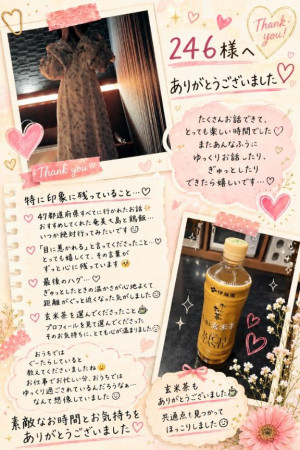 Thank you!
246様へ
ありがとうございました♡
たくさんお話できて、
とっても楽しい時間でした♡
またあんなふうに
ゆっくりお話したり、
ぎゅっとしたり
できたら嬉しいです…♡
Thank you!
特に印象に残っていること…♡
47都道府県すべてに行かれたお話✨
おすすめしてくれた奄美大島と鶏飯…
いつか絶対行ってみたいです😊
「目に惹かれる」と言ってくださったこと…♡
とっても嬉しくて、その言葉が
ずっと心に残っています🥹
最後のハグ…♡
ぎゅっとしたときの温かさが心地よくて
距離がぐっと近くなった気がしました😊
玄米茶を選んでくださったこと🍵
プロフィールを見て選んでくださった
そのお気持ちに、とても心が温まりました♡
おうちでは
ぐーたらしていると
教えてくださいましたね😊
お仕事でお忙しい分、おうちでは
ゆっくり過ごされているんだろうなぁ…
なんて想像していました😊
素敵なお時間とお気持ちを
ありがとうございました♡
伊藤園
玄米茶も
ありがとうございました🍵
共通点も見つかって
ほっこりしました😊